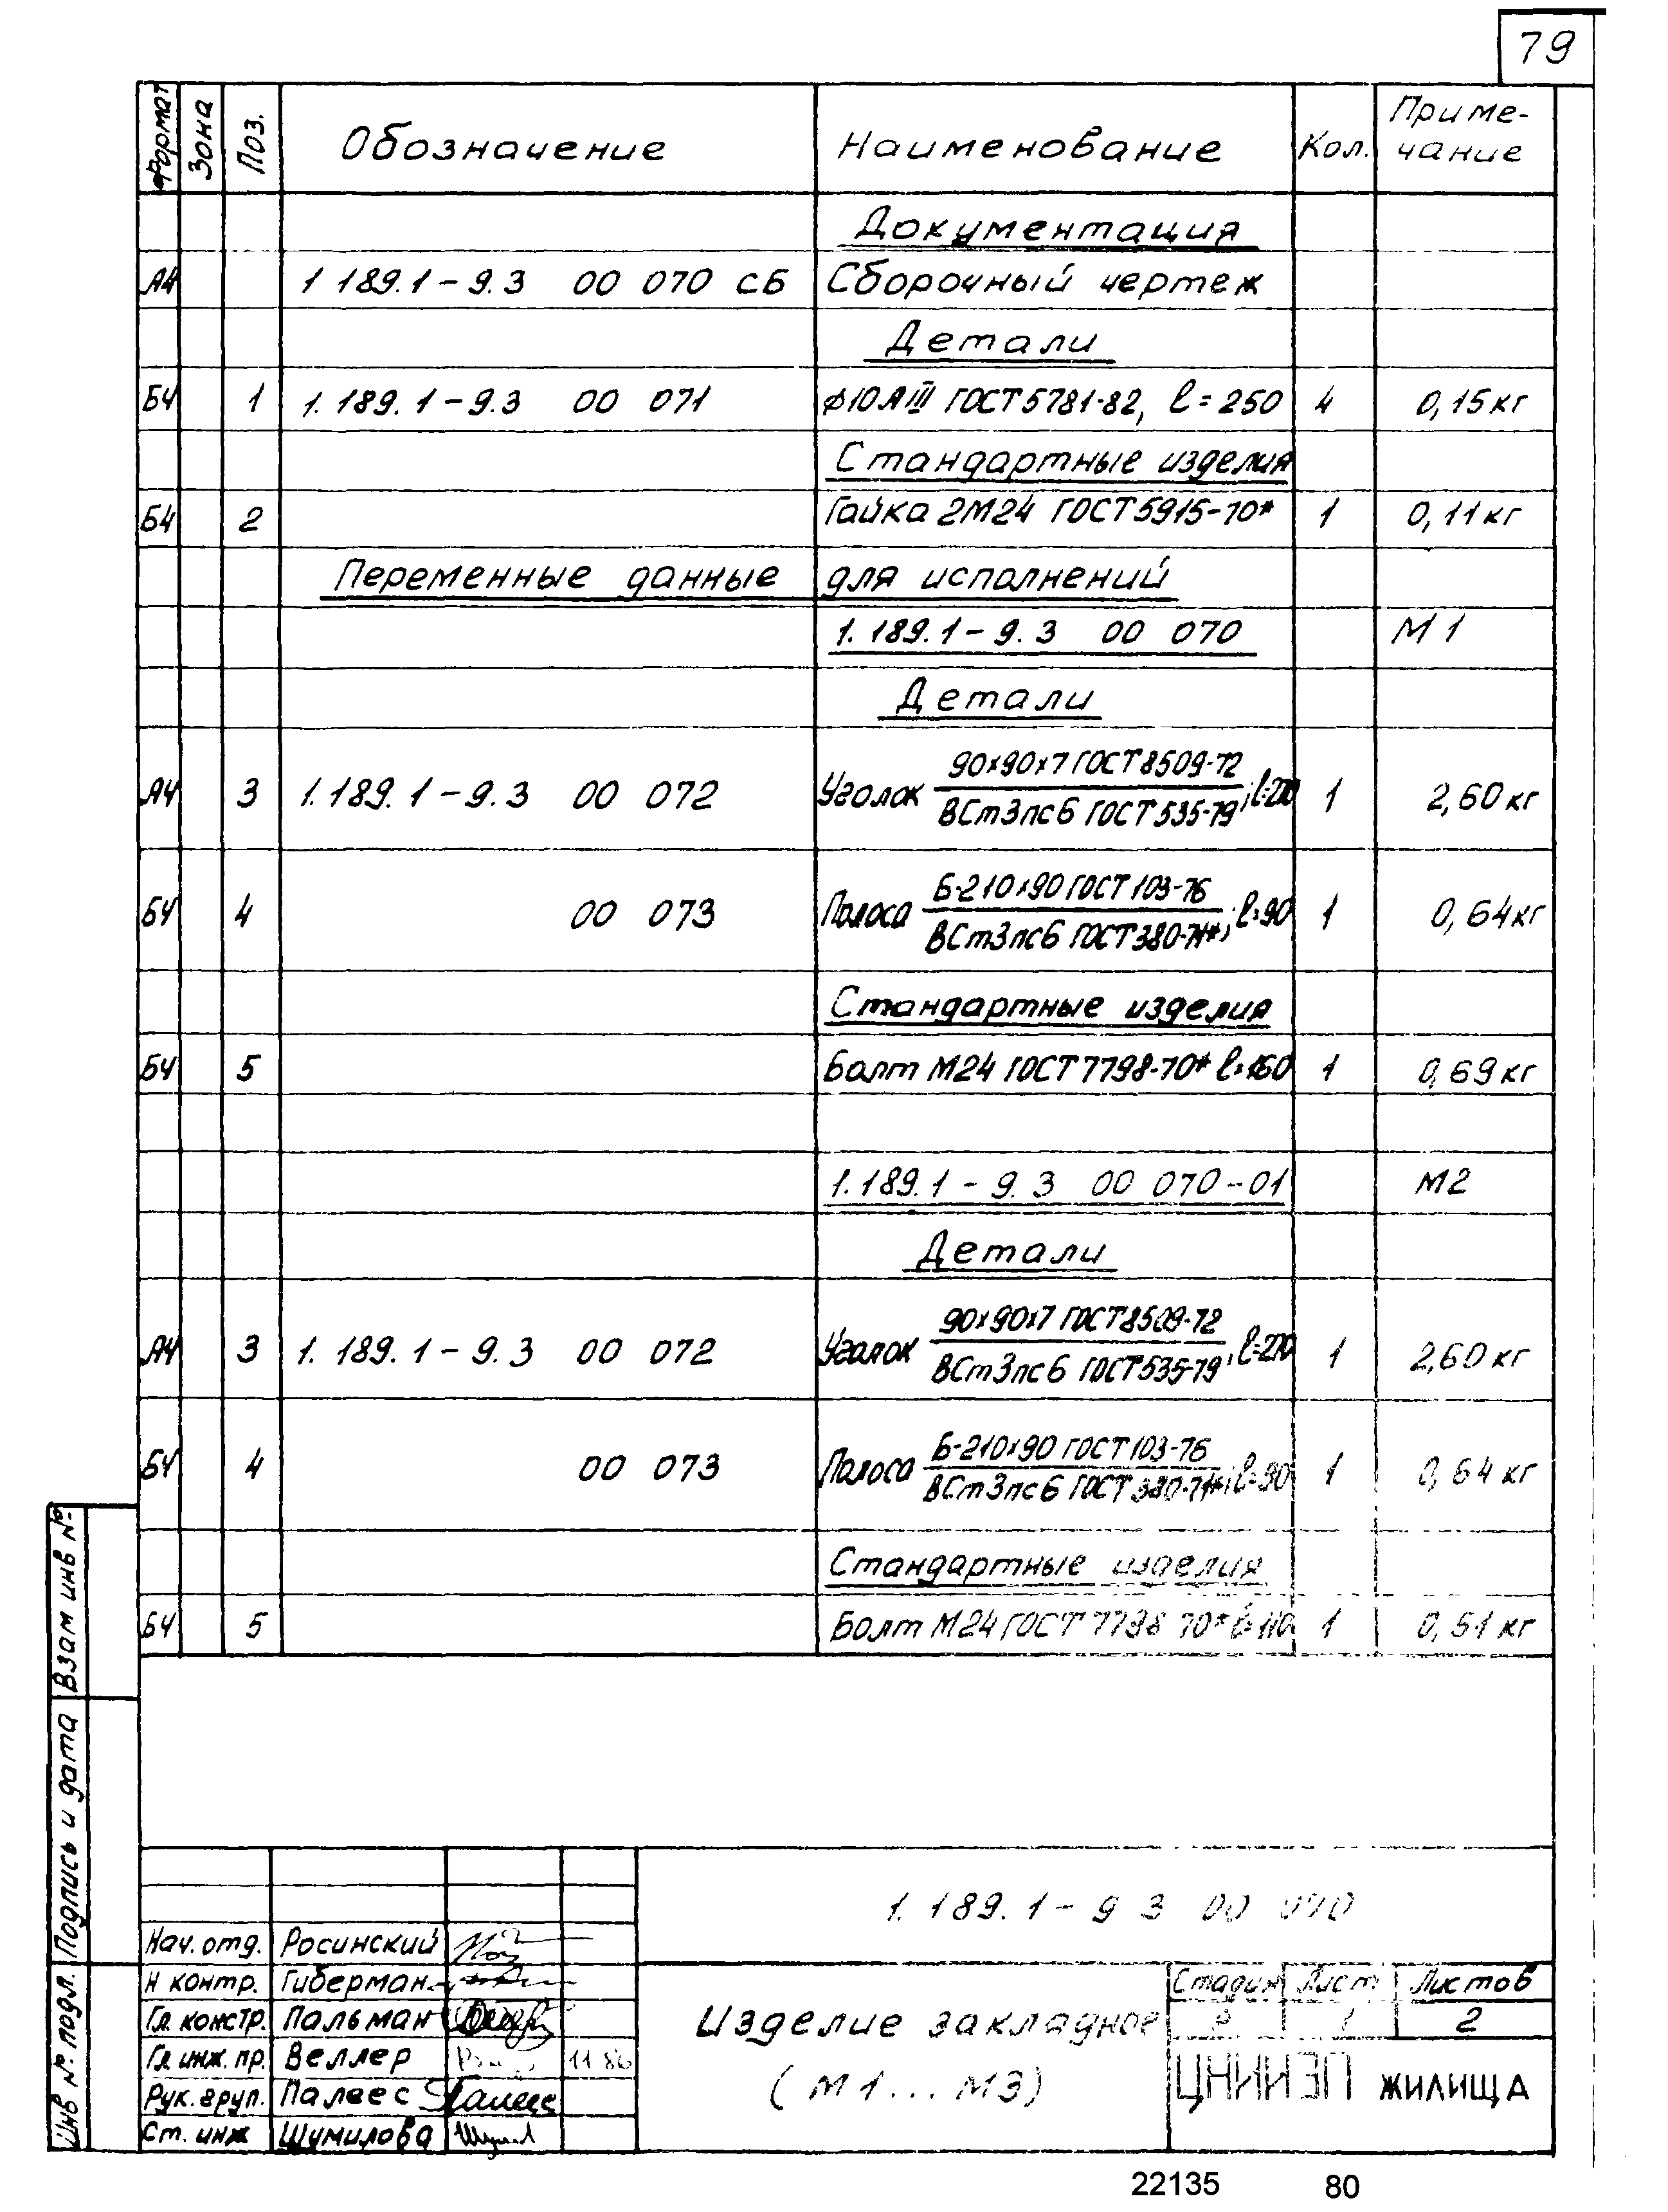 79
Формат Зона Поз. Обозначение Наименование Кол. Приме-
чание
Документация
А4 1 189.1-9.3 00 070 СБ Сборочный чертеж
Детали
БЧ 1 1.189.1-9.3 00 071 ф10АIII ГОСТ 5781-82, l=250 4 0,15кг
Стандартные изделия
БЧ 2 Гайка 2М24 ГОСТ 5915-70* 1 0,11кг
Переменные данные для исполнений
1.189.1-9.3 00 070 М1
Детали
А4 3 1.189.1-9.3 00 072 Уголок 90х90х7 ГОСТ 8509-72
ВСт3пс6 ГОСТ 535-79, l=270 1 2,60кг
БЧ 4 00 073 Полоса Б-2 10х90 ГОСТ 103-76
ВСт3пс6 ГОСТ 380-71*, l=90 1 0,64кг
Стандартные изделия
БЧ 5 Болт М24 ГОСТ 7798-70* l=160 1 0,69кг
1.189.1-9.3 00 070-01 М2
Детали
А4 3 1.189.1-9.3 00 072 Уголок 90х90х7 ГОСТ 8509-72
ВСт3пс6 ГОСТ 535-79, l=270 1 2,60кг
БЧ 4 00 073 Полоса Б-2 10х90 ГОСТ 103-76
ВСт3пс6 ГОСТ 380-71*, l=90 1 0,64кг
Стандартные изделия
БЧ 5 Болт М24 ГОСТ 7798 70* l=110 1 0,51кг
Взам инв №
Подпись и дата
Инв № подл.
1.189.1-9 3 00 070
Нач. отд. Росинский
Н контр. Гиберман
Гл. констр. Пальман
Гл инж. пр. Веллер 11 86
Рук. груп. Палеес
Ст. инж Шумилова
Изделие закладное
(М1...М3)
Стадия Лист Листов
Р 1 2
ЦНИИЭП ЖИЛИЩА
22135 80